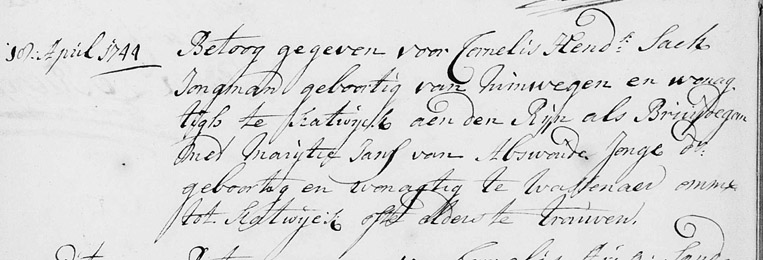 18: April 1744 Betoog gegeven voor Cornelis Hend:k Sack
Jongman geboortig van Nimwegen en woonag
tigh te Katwijck aen den Rijn als Bruijdegom
met Marijtie Jans van Abswoude Jonge d:
geboortig en woonagtig te Wassenaer omme
tot Katwijck ofte elders te trouwen.